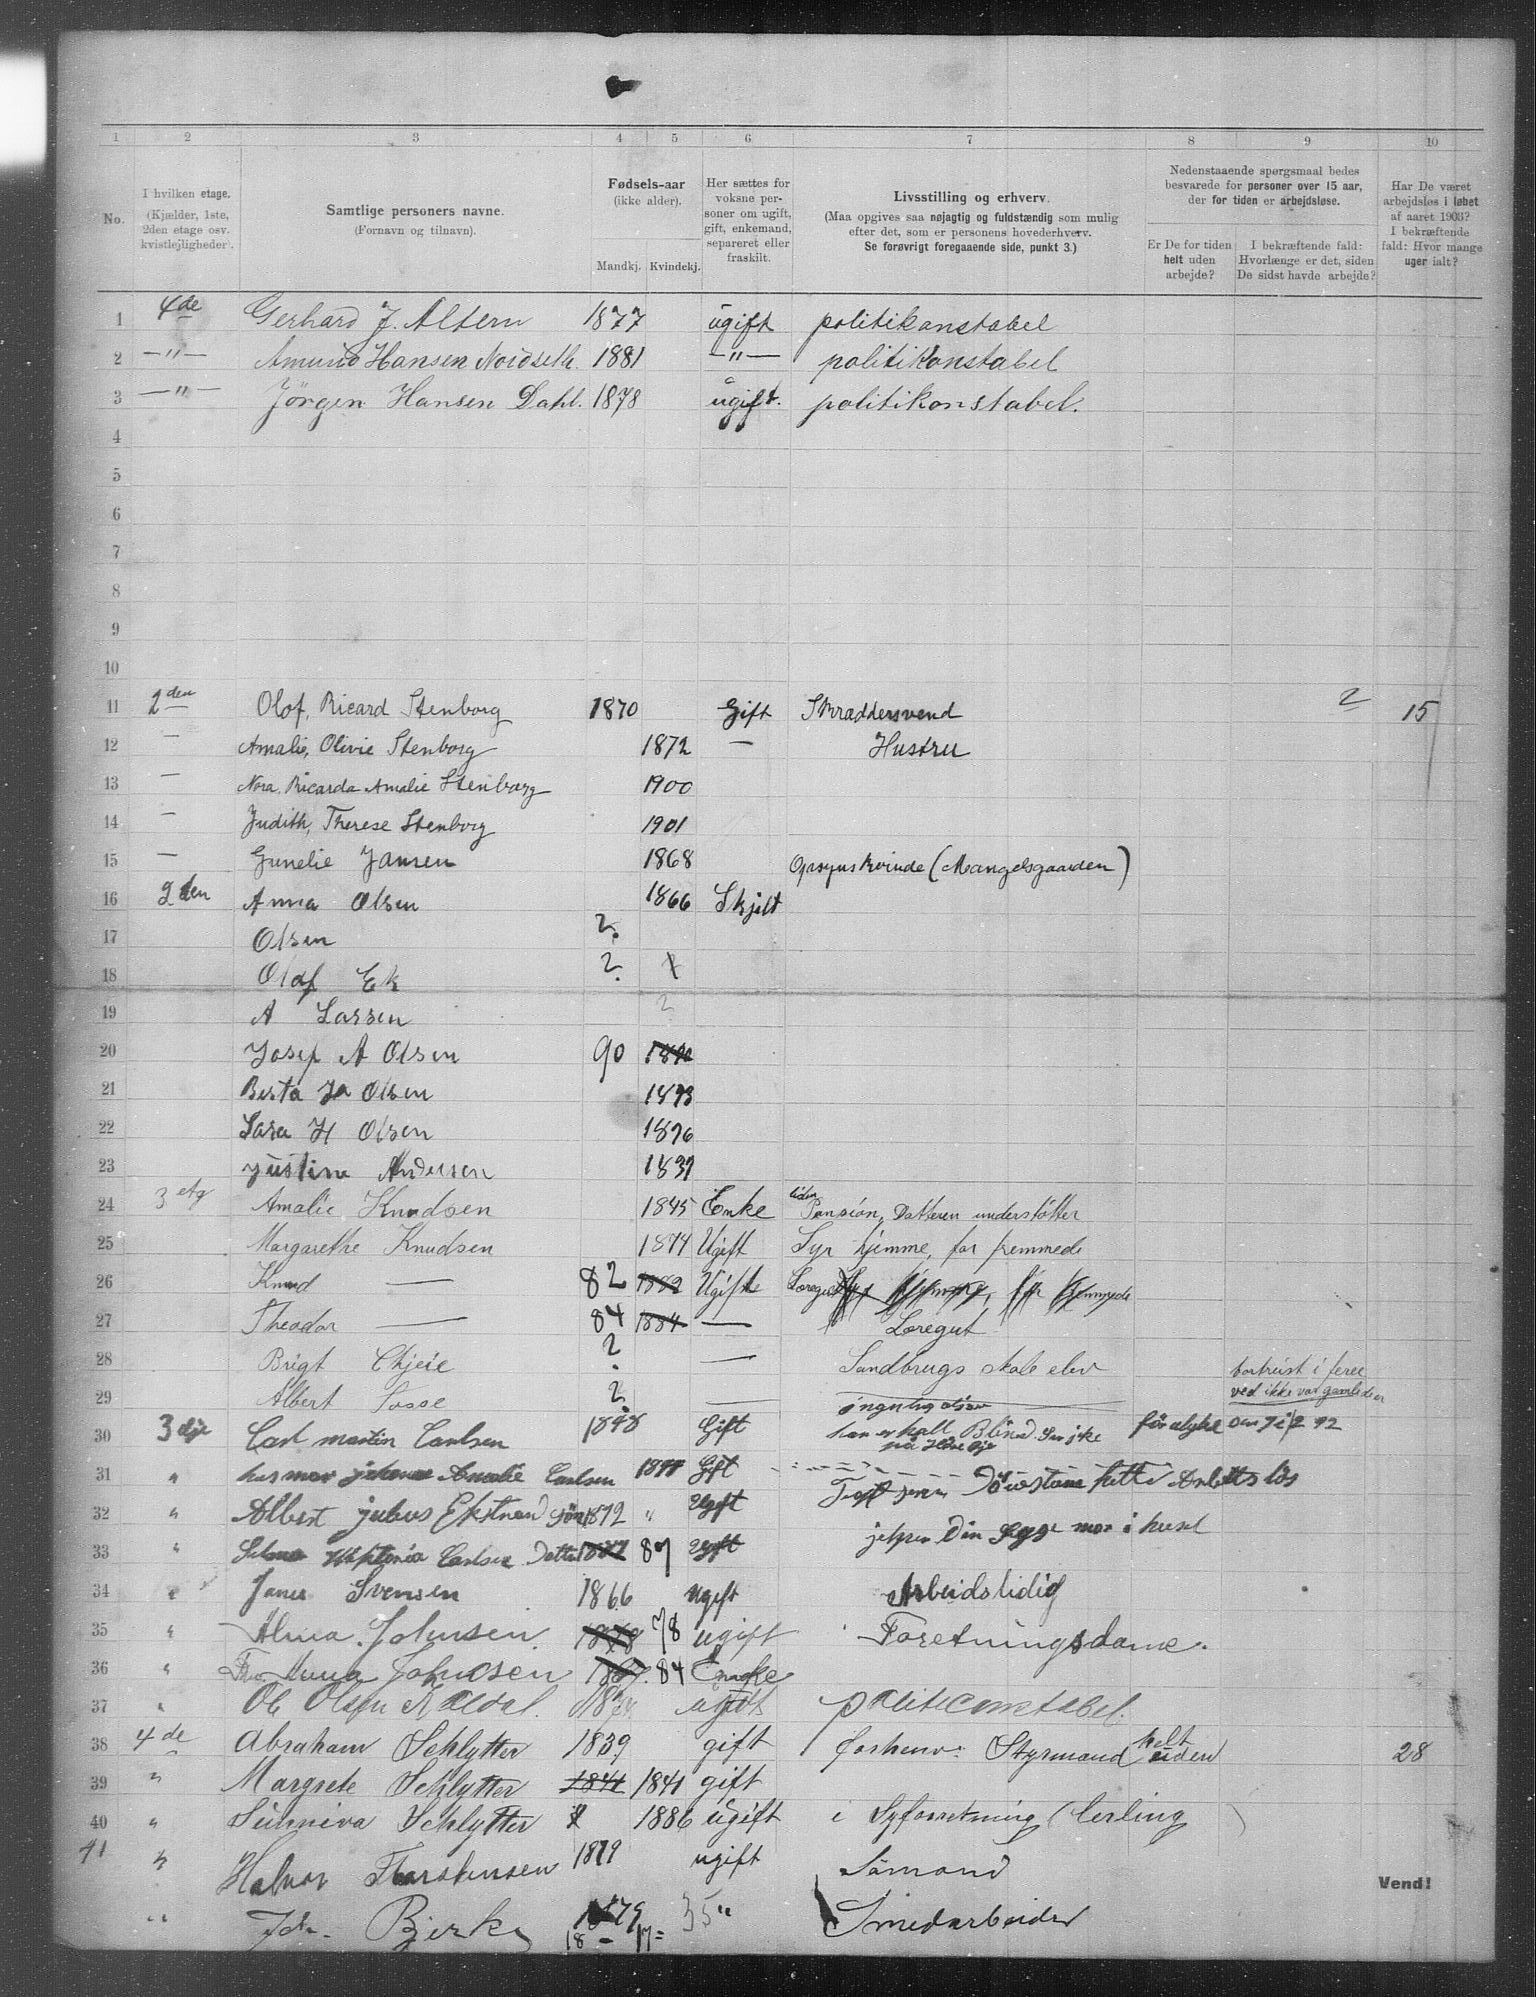 1 2 3 4 5 6 7 8 9 10
No.
I hvilken etage.
(Kjælder, 1ste,
2den etage osv.
kvistlejligheder).
Samtlige personers navne.
(Fornavn og tilnavn).
Fødsels-aar
(ikke alder).
Mandkj. Kvindekj.
Her sættes for
voksne per-
soner om ugift,
gift, enkemand,
separeret eller
fraskilt.
Livsstilling og erhverv.
(Maa opgives saa nøjagtig og fuldstændig som mulig
efter det, som er personens hovederhverv.
Se forøvrigt foregaaende side, punkt 3.)
Nedenstaaende spørgsmaal bedes
besvarede for personer over 15 aar,
der for tiden er arbejdsløse.
Er De for tiden
helt uden
arbejde?
I bekræftende fald:
Hvorlænge er det, siden
De sidst havde arbejde?
Har De været
arbejdsløs i løbet
af aaret 1903?
I bekræftende
fald: Hvor mange
uger ialt?
1 4de Gerhard J. Altern 1877 ugift politikonstabel
2 —"— Amund Hansen Nordseth. 1881 —"— politikonstabel
3 —"— Jörgen Hansen Dahl. 1878 ugift. politikonstabel.
4
5
6
7
8
9
10
11 2den Olof, Ricard Stenborg 1870 Gift Skraddersvend 2 15
12 — Amalie, Olivie Stenborg 1872 — Hustru
13 — Nora, Ricarda Amalie Stenborg 1900
14 — Judith, Therese Stenborg 1901
15 — Gunelie Jansen 1868 Opsynskvinde (Mangelsgaarden)
16 2den Anna Olsen 1866 Skjilt
17 Olsen ?
18 Olaf Ek ?
19 A Larsen ?
20 Josef A Olsen 90 1890
21 Berta Olsen 1893
22 Sara H Olsen 1896
23 Justine Andersen 1837
24 3 etg Amalie Knudsen 1845 Enke liden Pansion, Datteren understøtter
25 Margarethe Knudsen 1874 Ugift Syr hjemme, for fremmede
26 Knud — 82 1882 Ugifte
27 Theodor — 84 1884 — Løregut
28 Brigt ? — Landbrugs skole elev fortreist i ferie
29 Albert ? — ved ikke vor gamle de er
30 3dje Carl martin Carlsen 1848 Gift Blind
31 " Amalie Carlsen Gift
32 " Albert julius Sön 1872 " Ugift
33 " Carlsen Datter 87 Ugift jelper Din syge mor i huset
34 " Svensen 1866 ugift Arbeidsledig
35 " Alma Johnsen. 1878 78 ugift Foretningsdame.
36 " Anna Johnsen 84
37 " Ol. Olsen ugift politiconstabel.
38 4de Abraham Schlytter 1839 gift forhenv: Styrmand helt uden 28
39 " Margrete Schlytter 1841 1841 gift
40 " Sunniva Schlytter 1886 ugift i Syforretning (Cerling)
41 " Halvor Thorstensen 1879 ugift Sömand
Vend!
" Joh. Bjerke 1879 35 " Smedarbeider
18 – 17=